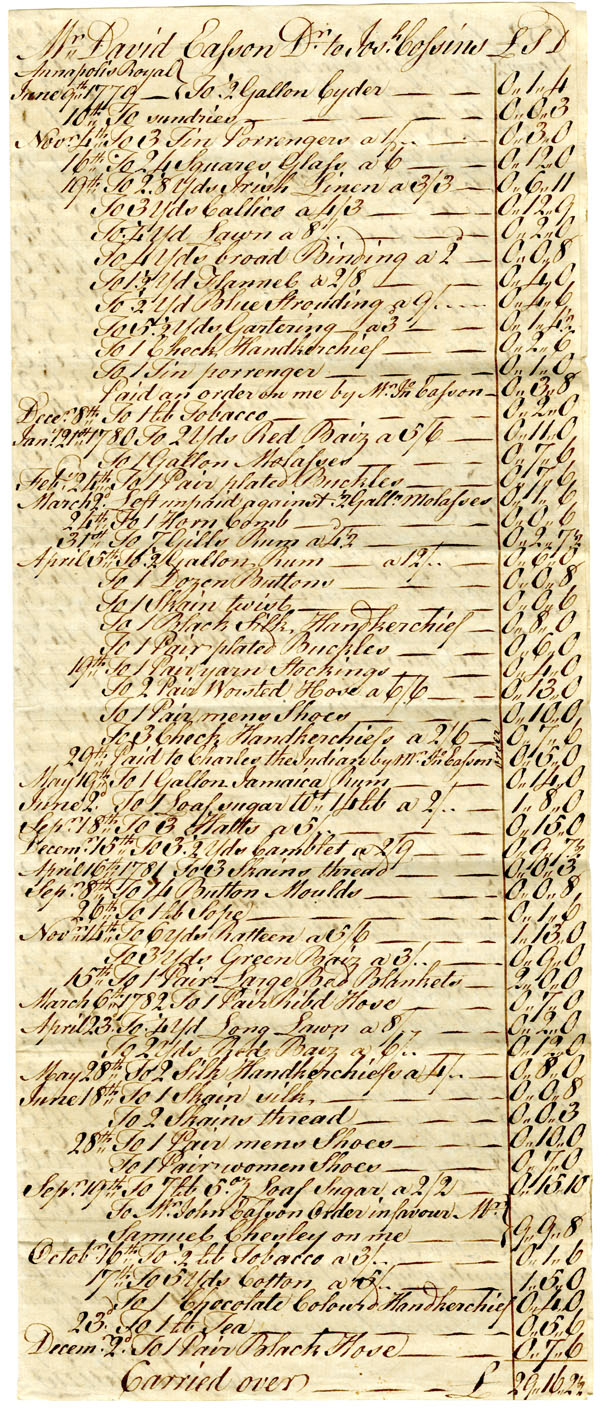 Mr. David Easson Dr. to Josh. Cossins £ S D
Annapolis Royal
June 9th. 1779 — To ½ Gallon Cyder — 0.. 1.. 4
10th. To sundries — 0.. 6.. 3
Novr. 4th. To 3 Tin Porrengers a 1/.. — 0.. 3.. 0
16th. To 24 Squares Glass a 6 — 0.. 12.. 0
19th. To 2.8 Yds Irish Linen a 3/3 — 0.. 6.. 11
To 3 Yds Callico a 4/3 — 0.. 12.. 9
To ¼ Yd Lawn a 8/.. — 0.. 2.. 0
To 4 Yds broad Binding a 2 — 0.. 0.. 8
To 1½ Yd Flannel a 2/8 — 0.. 4.. 0
To ½ Yd Blue Strouding a 9/.. — 0.. 4.. 6
To 5½ Yds Gartering a 3 — 0.. 1.. 4½
To 1 Check Handkerchief — 0.. 2.. 6
To 1 Tin porrenger — 0.. 1.. 0
Paid an order on me by Mr. Jn. Easson — 0.. 3.. 8
Decer. 8th. To 1 lb Tobacco — 0.. 2.. 0
Janr. 21st 1780 To 2 Yds Red Baiz a 5/6 — 0.. 11.. 0
To 1 Gallon Molasses — 0.. 7.. 6
Febr. 24th. To 1 Pair plated Buckles — 0.. 17.. 9
March 2d. Left unpaid against ½ Galln. Molasses 0.. 1.. 6
24th. To 1 Horn Comb — 0.. 0.. 6
31st To 7 Gills Rum a 4½ — 0.. 2.. 7½
April 5th. To ½ Gallon Rum — a 12/.. — 0.. 6.. 0
To 1 Dozen Buttons — 0.. 0.. 8
To 1 Skain twist — 0.. 0.. 6
To 1 Black Silk Handkerchief — 0.. 8.. 0
To 1 Pair plated Buckles — 0.. 6.. 0
19th. To 1 Pair yarn Stockings — 0.. 4.. 0
To 2 Pair Worsted Hose a 6/6 — 0.. 13.. 0
To 1 Pair mens Shoes — 0.. 10.. 0
To 3 Check Handkerchiefs a 2/6 — 0.. 7.. 6
29th. Paid to Charles the Indian by Mr. Jn. Easson order 0.. 5.. 0
May 19th. To 1 Gallon Jamaica Rum — 0.. 14.. 0
June 2d. To 1 Loaf sugar Wt. 14 lb a 2/.. — 1.. 8.. 0
Sepr. 18th. To 3 Hatts a 5/ — 0.. 15.. 0
Decemr. 15th. To 3.2 Yds Camblet a 2/9 — 0.. 9.. 7½
April 16th. 1781 To 3 Skains thread — 0.. 0.. 3
Sepr. 8th. To 14 Button Moulds — 0.. 0.. 8
26th. To 1 lb Sope — 0.. 1.. 6
Novr. 14th. To 6 Yds Ratteen a 5/6 — 1.. 13.. 0
To 3 Yds Green Baiz a 3/.. — 0.. 9.. 0
15th. To 1 Pair Large Bed Blankets — 2.. 0.. 0
March 6th. 1782 To 1 Pair Ribd Hose — 0.. 7.. 0
April 23d. To ¼ Yd Long Lawn a 8/ — 0.. 2.. 0
To 2 Yds Red Baiz a 6/.. — 0.. 12.. 0
May 28th. To 2 Silk Handkerchiefs a 4/.. — 0.. 8.. 0
June 18th. To 1 Skain silk — 0.. 0.. 8
To 2 Skains thread — 0.. 0.. 3
28th. To 1 Pair mens Shoes — 0.. 10.. 0
To 1 Pair women Shoes — 0.. 7.. 0
Sepr. 19th. To 7 lb 5 oz Loaf Sugar a 2/2 — 0.. 15.. 10
To Mr. John Easson Order in favour Mr.
Samuel Chesley on me — 9.. 9.. 8
Octobr. 16th. To ½ lb Tobacco a 3/.. — 0.. 1.. 6
17th. To 5 Yds Cotton a 5/.. — 1.. 5.. 0
To 1 Chocolate Colourd Handkerchief 0.. 4.. 0
23d. To 1 lb Tea — 0.. 5.. 6
Decemr. 2d. To 1 Pair Black Hose — 0.. 7.. 6
Carried over — £ 29.. 16.. 2½